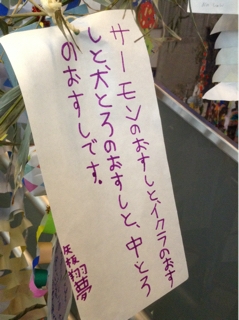 サーモンのおすしと、イクラのおす
しと、大とろのおすしと、中とろ
のおすしです。
矢板翔夢